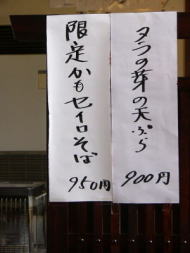 タラの芽の天ぷら
900円
限定かもセイロそば
950円